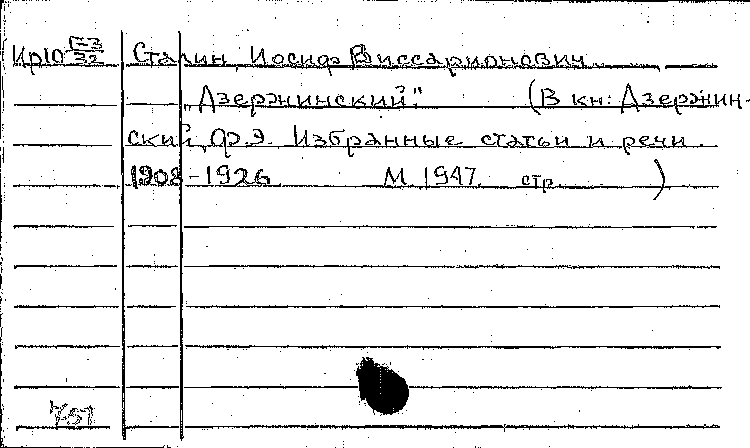 Ир10 Г-3/32 Сталин, Иосиф Виссарионович.
„Дзержинский". (В кн: Дзержин-
ский, Ф.Э. Избранные статьи и речи.
1908-1926 М. 1947. стр. )
757